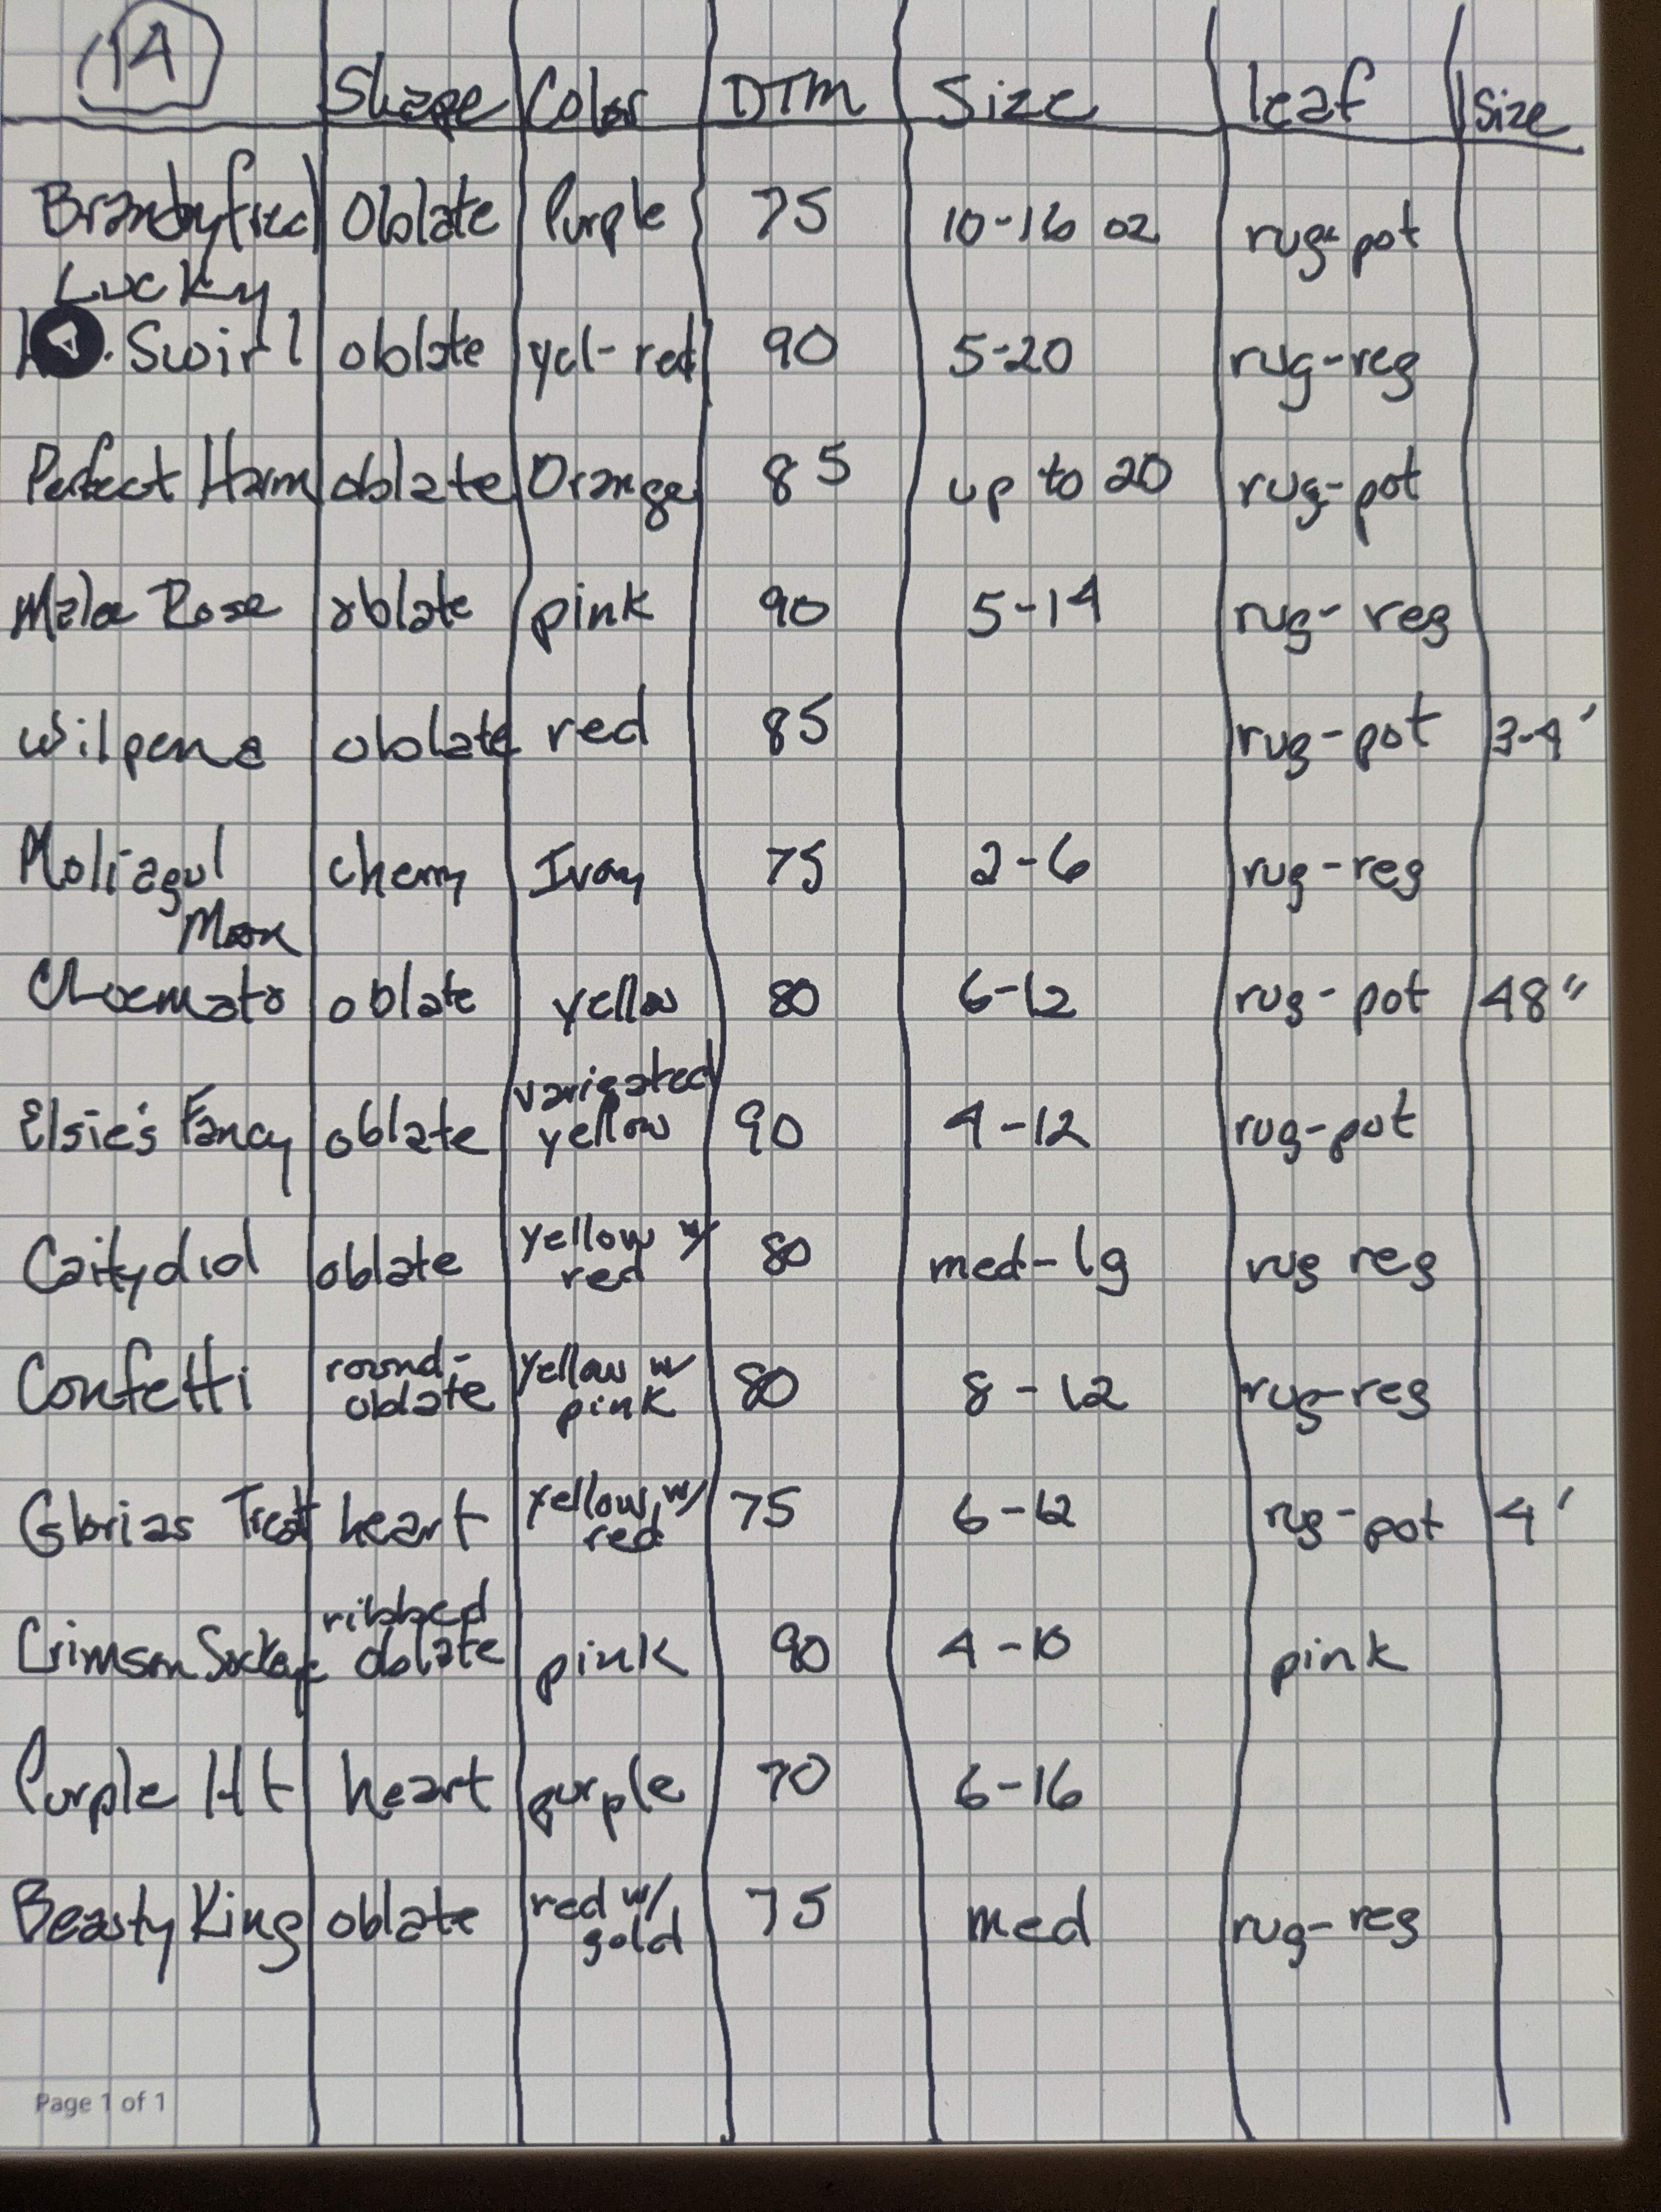 14
Shape Color DTM Size leaf Size
Brandyfred Oblate Purple 75 10-16 oz rug-pot
Lucky
. Swirl oblate yel-red 90 5-20 rug-reg
Perfect Harm oblate Orange 85 up to 20 rug-pot
Mala Rose oblate pink 90 5-14 rug-reg
Wilpena oblate red 85 rug-pot 3-4'
Moliagul cherry Ivory 75 2-6 rug-reg
Moon
Chloemato oblate yellow 80 6-12 rug-pot 48"
varigated
Elsie's Fancy oblate yellow 90 4-12 rug-pot
Caitydid oblate yellow w/ 80 med-lg rug reg
red
Confetti round- yellow w 80 8-12 rug-reg
oblate pink
Glorias Treat heart yellow w/ 75 6-12 rug-pot 4'
red
ribbed
Crimson Sockeye oblate pink 90 4-10 pink
Purple Ht heart purple 70 6-16
Beauty King oblate red w/ 75 med rug-reg
gold
Page 1 of 1